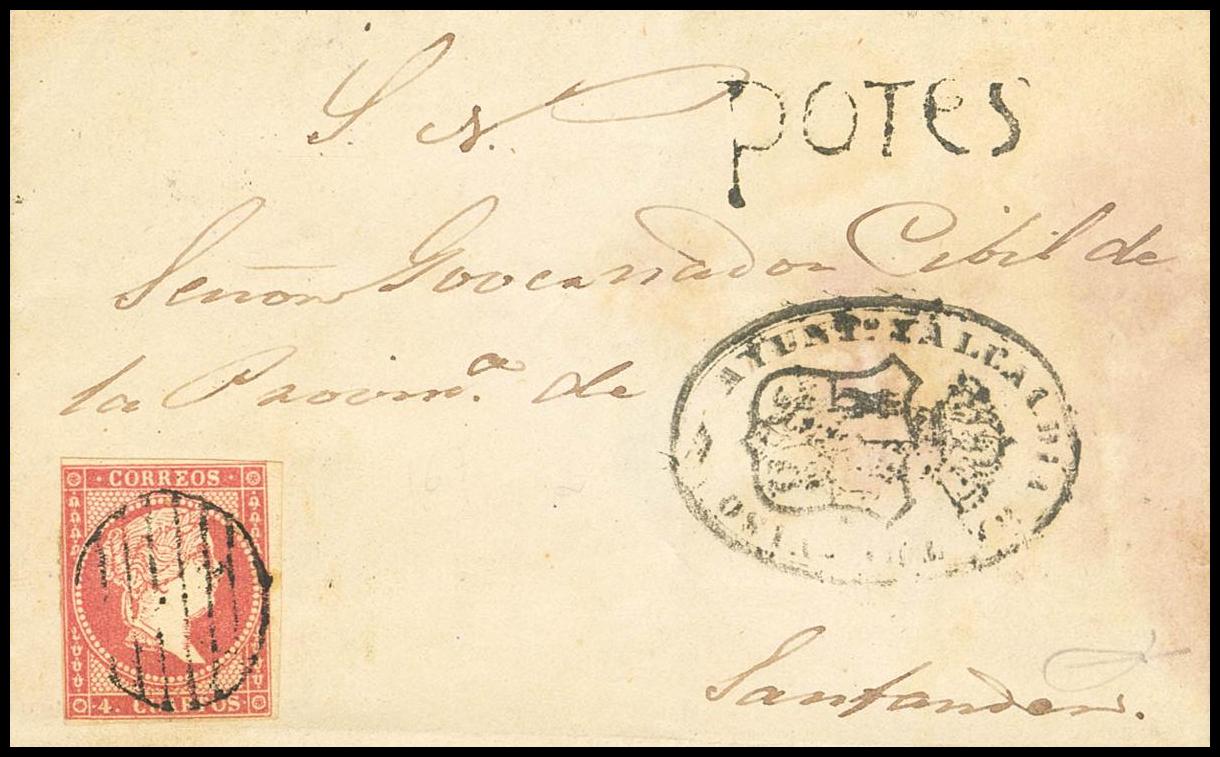 S. N.
POTES
Señor Governador Cibil de
la Provin.ª de
AYUNT.º
CORREOS
4. CORREOS
Santander.